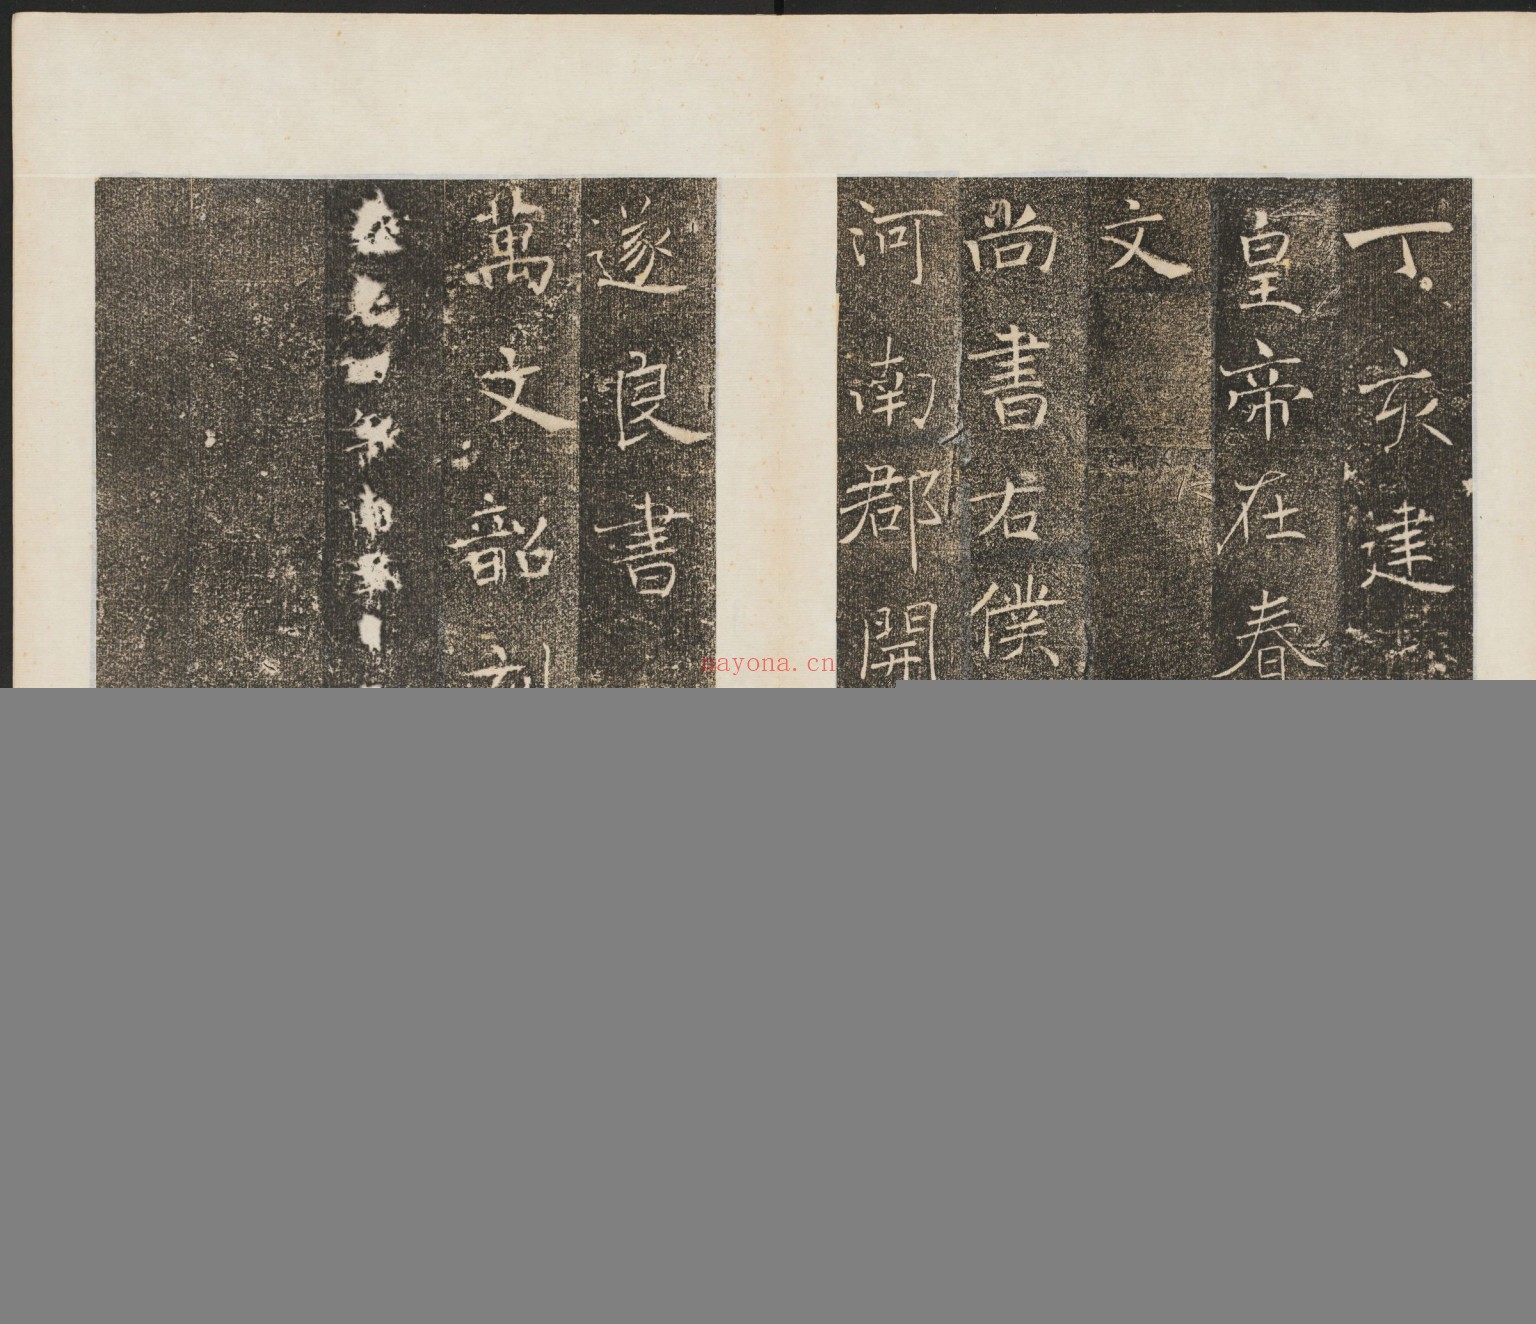 丁亥建
皇帝在春
文
尚書右僕
河南郡開
遂良書
萬文韶刻
nayona.cn